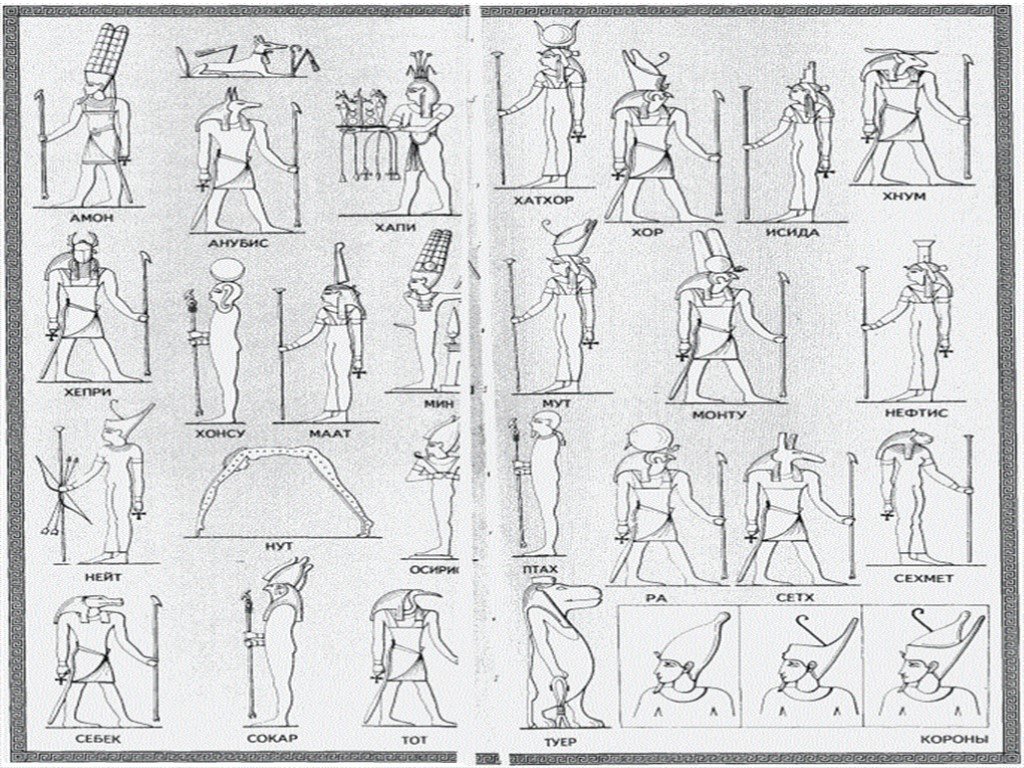 АМОН
АНУБИС
ХАПИ
ХЕПРИ
ХОНСУ
МААТ
МИН
НЕЙТ
НУТ
ОСИРИС
СЕБЕК
СОКАР
ТОТ
ХАТХОР
ХОР
ИСИДА
ХНУМ
МУТ
МОНТУ
НЕФТИС
ПТАХ
РА
СЕТХ
СЕХМЕТ
ТУЕР
КОРОНЫ